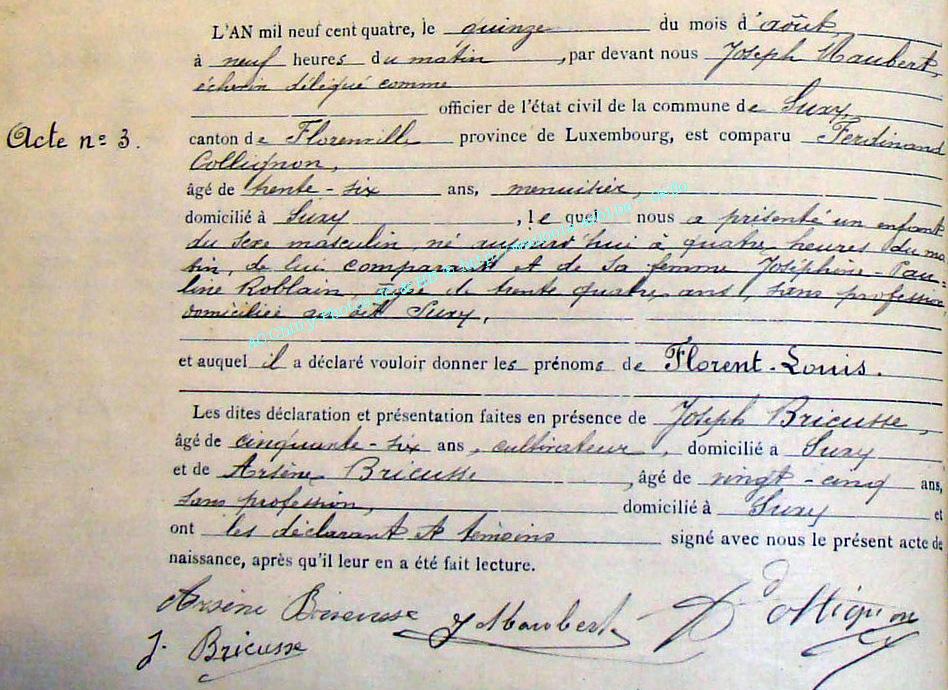 L'AN mil neuf cent quatre, le quinze du mois d'août,
à neuf heures du matin, par devant nous Joseph Maubert,
échevin délégué comme
officier de l'état civil de la commune de Suxy,
Acte n° 3.
canton de Florenville province de Luxembourg, est comparu Ferdinand
Collignon,
âgé de trente-six ans, menuisier,
domicilié à Suxy, le quel nous a présenté un enfant
du sexe masculin, né aujourd'hui à quatre heures du ma-
tin, de lui comparant et de sa femme Joséphine-Pau-
line Roblain, âgée de trente quatre ans, sans profession
domiciliée au dit Suxy,
et auquel il a déclaré vouloir donner les prénoms de Florent-Louis.
Les dites déclaration et présentation faites en présence de Joseph Bricusse,
âgé de cinquante-six ans, cultivateur, domicilié à Suxy
et de Arsène Bricusse, âgé de vingt-cinq ans,
sans profession, domicilié à Suxy et
ont les déclarant et témoins signé avec nous le présent acte de
naissance, après qu'il leur en a été fait lecture.
Arsène Bricusse J Maubert Collignon
J. Bricusse